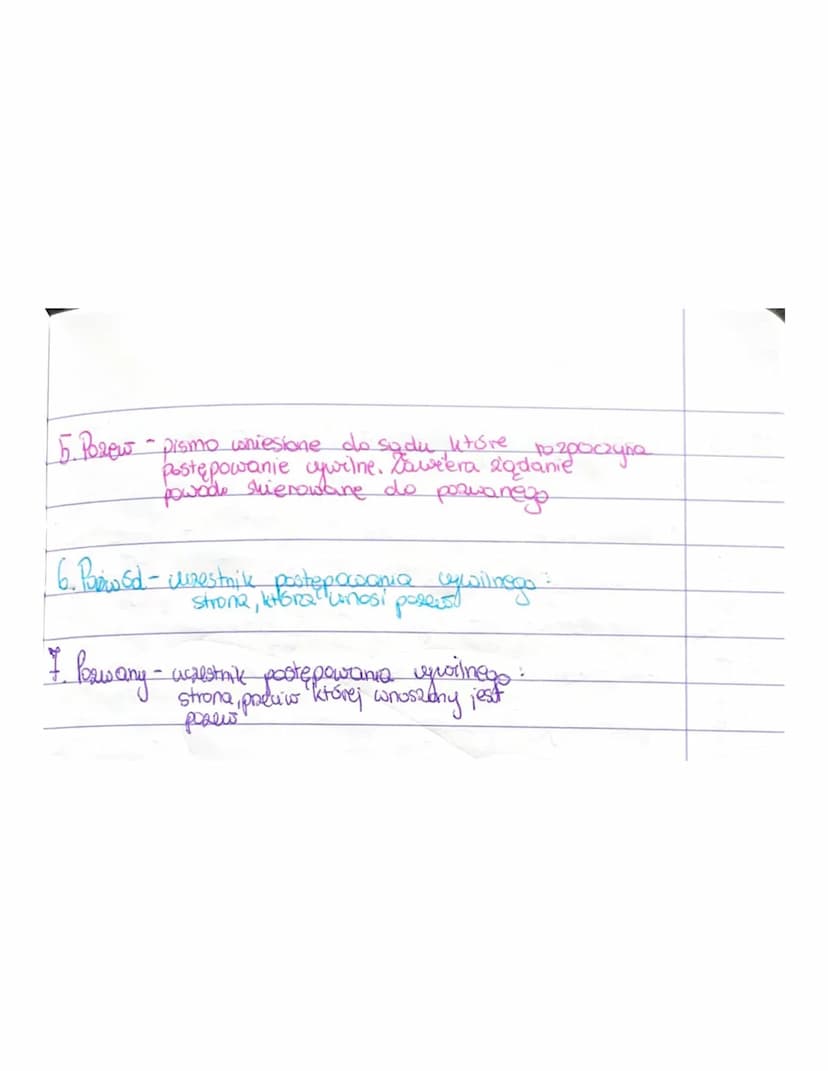 5. Pozew - pismo wniesione do sądu które rozpoczyna
postępowanie cywilne. Zawiera żądanie
powoda skierowane do pozwanego
6. Powód - uczestnik postępowania cywilnego:
strona, która wnosi pozew
7. Pozwany - uczestnik postępowania cywilnego:
strona, przeciw której wnoszony jest
pozew